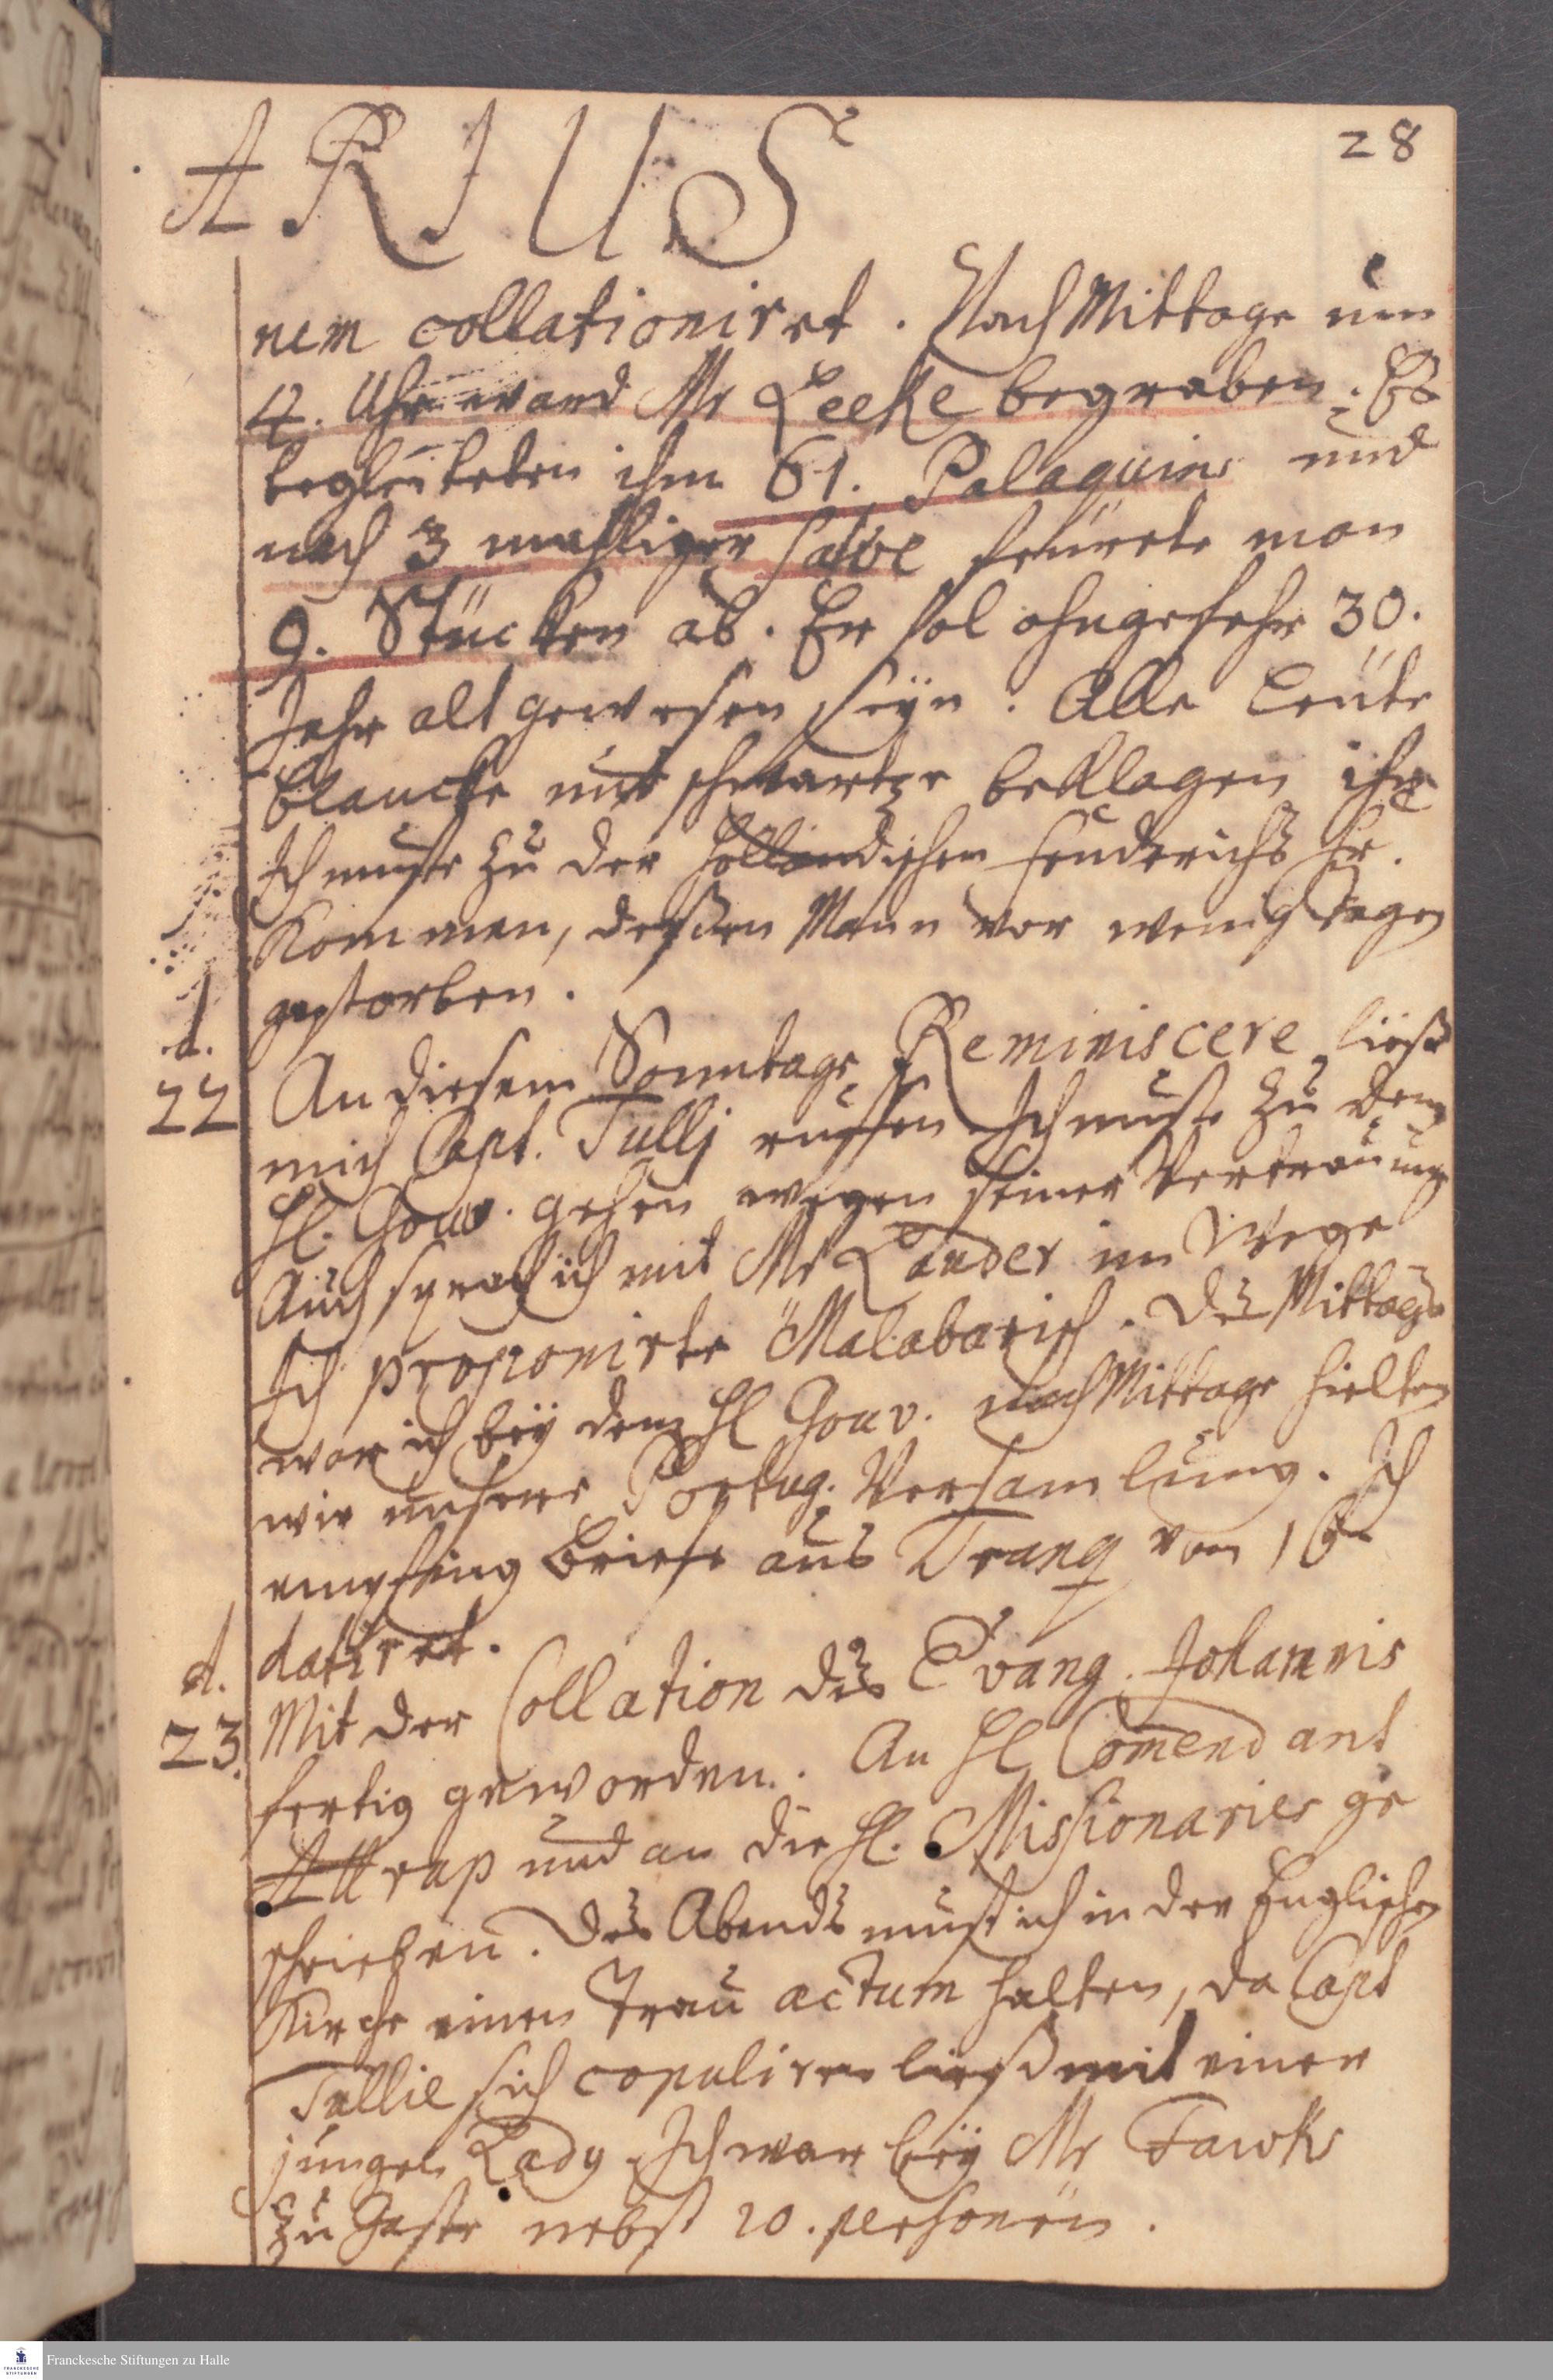 ARIUS
28
nem collationiret. Nach Mittage um
4. Uhr ward Mr Leeke begraben. Es
begleiteten ihm 61. Palaquins und
nach 3 mahliger Salve feürete man
9. Stücken ab. Er sol ohngefehr 30.
Jahr alt gewesen seÿn. Alle Leüte
blancke und schwartze beklagen ihn
Ich muste zu der Holländischen Fenderichs Fr.
kommen, deßen Mann vor wenig Tagen
gestorben.
d.
22
An diesem Sonntage Reminiscere ließ
mich Capt. Tullj ruffen Ich muste zu dem
H. Gouv. gehen wegen seiner Vertrauung
Auch sprach ich mit Mr Lander im Wege
Ich proponirte Malabarisch. Des Mittags
war ich beÿ dem H Gouv. nach Mittage hielten
wir unsere Portug. Versamlung. Ich
empfing Briefe aus Tranq vom 16
datiret.
d.
23.
Mit der Collation des Evang. Johannis
fertig geworden. An H Comendant
Attrap und an die H. Missionaries ge
schrieben. Des Abends must ich in der Englischen
Kirche einen Trau actum halten, da Capt
Tullie sich copuliren ließ mit einer
jungen Lady Ich war beÿ Mr Fawks
zu Gaste nebst 20. personen.
Franckesche Stiftungen zu Halle